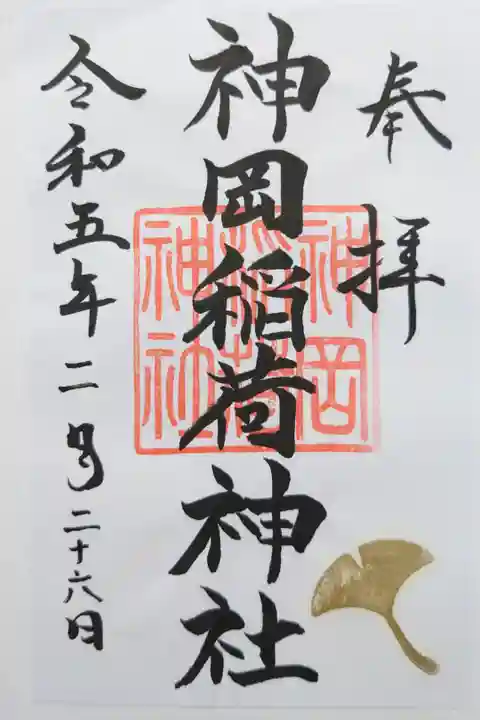 奉拝
神岡稲荷神社
神岡稲荷神社
令和五年二月二十六日